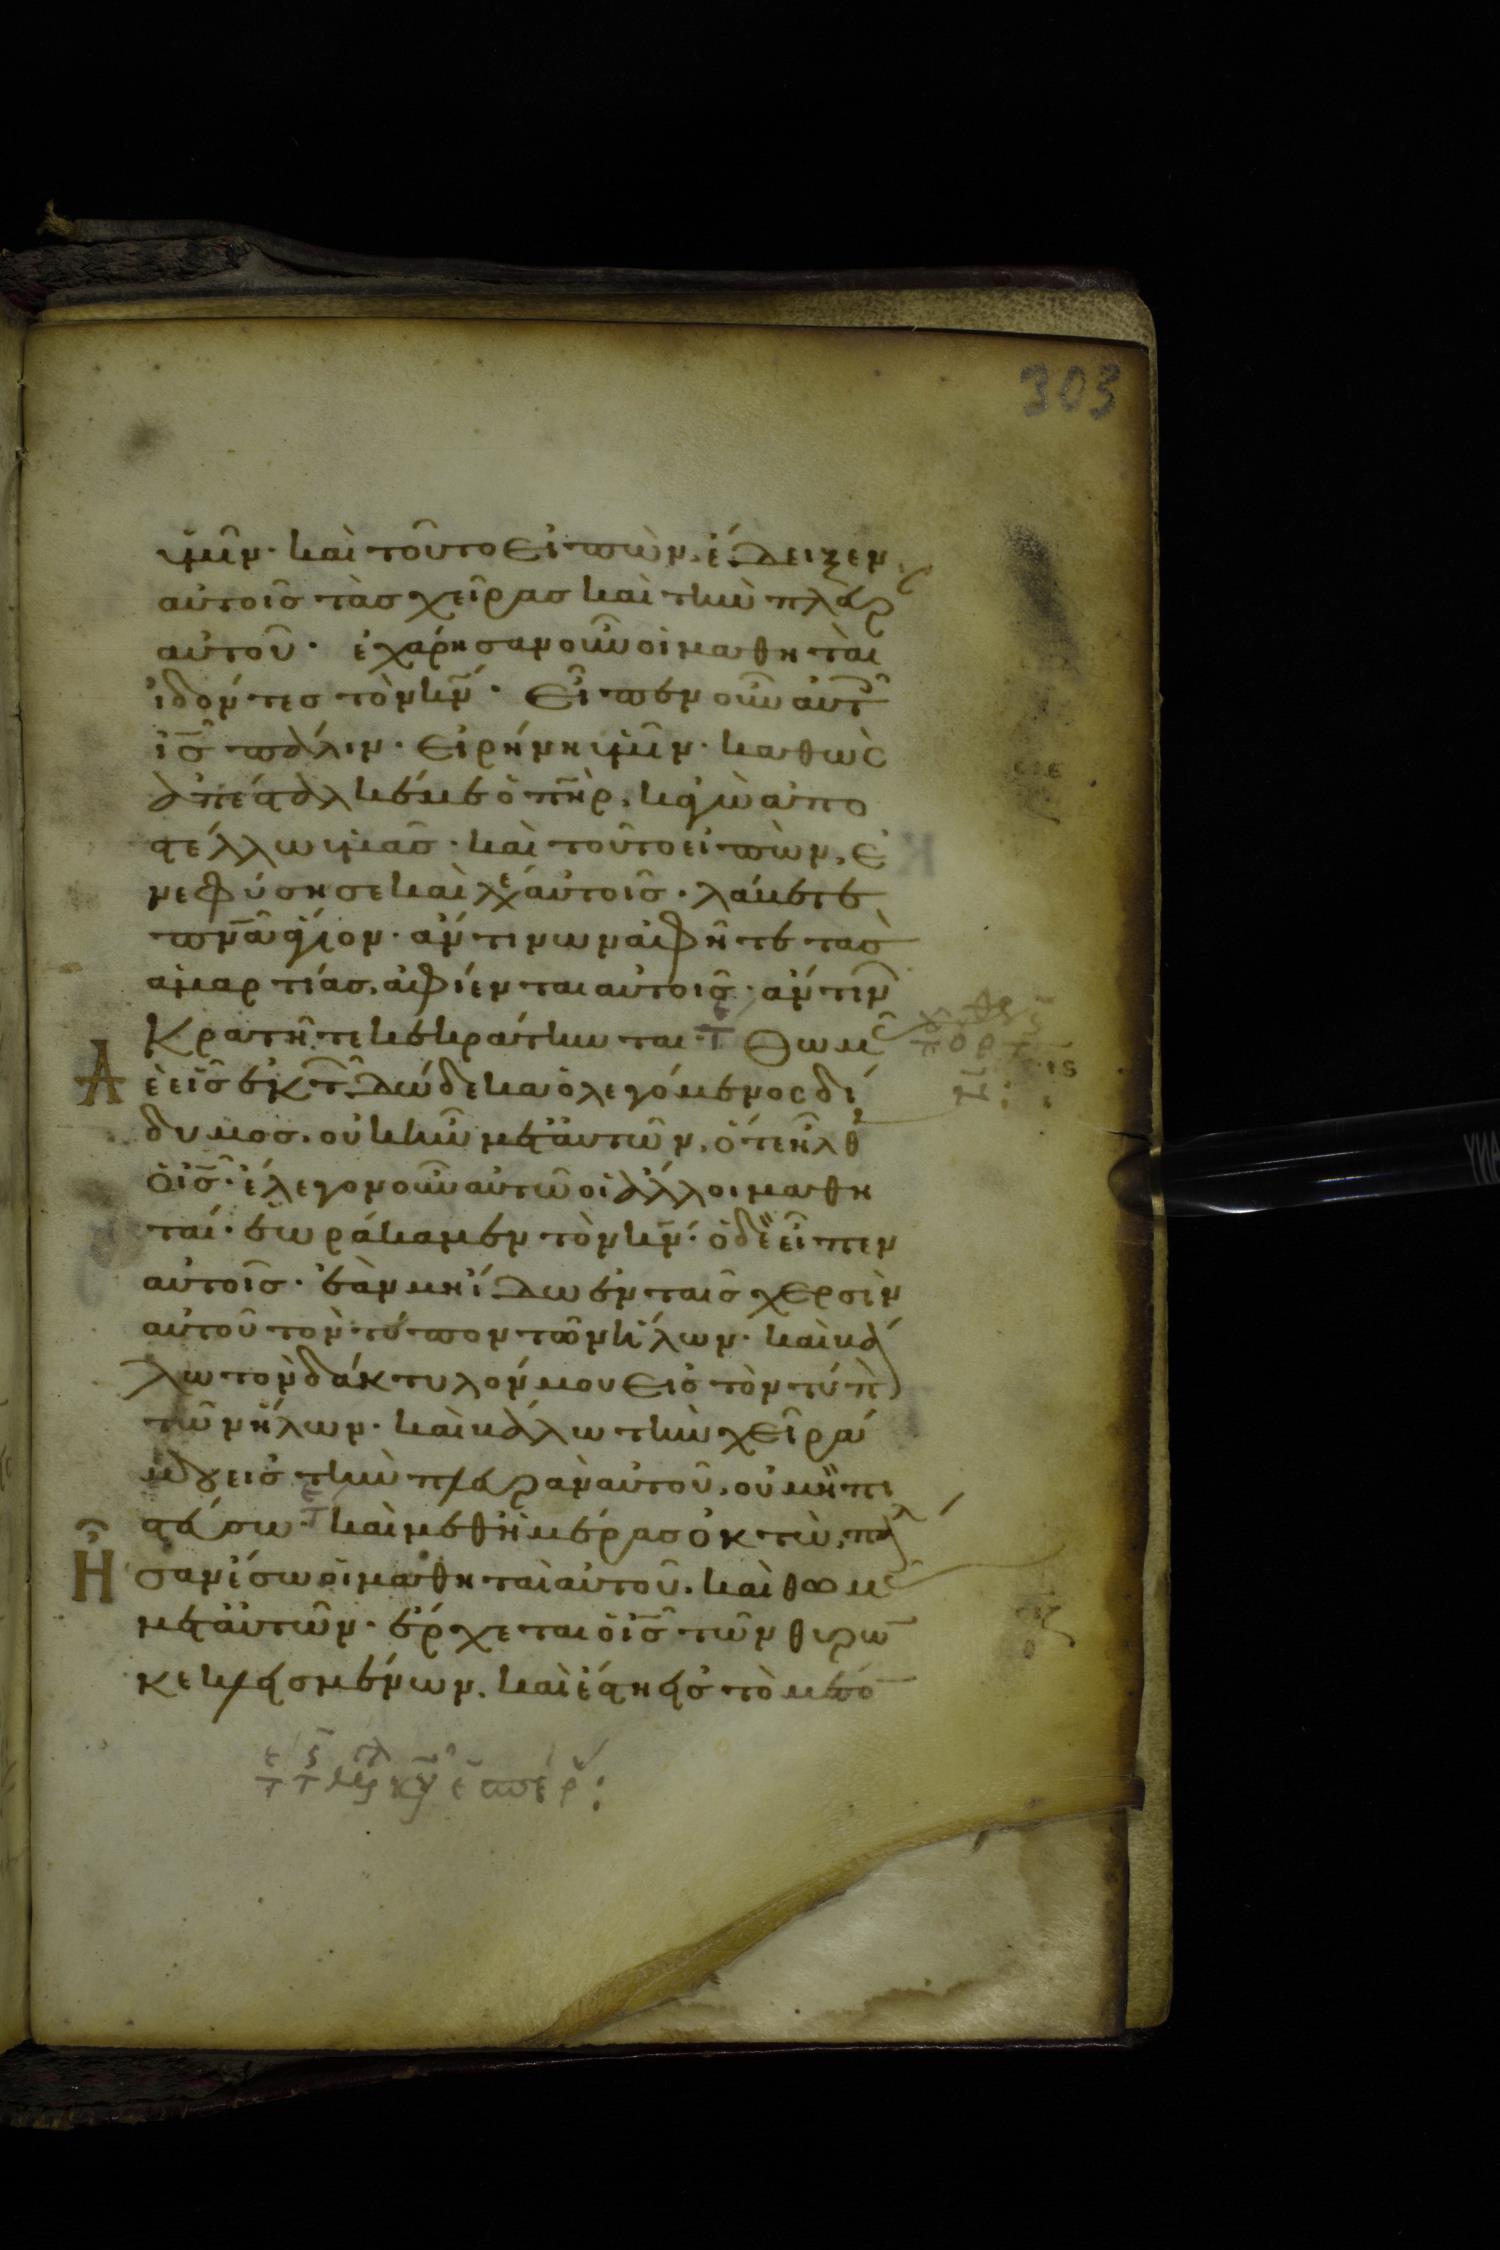 303
ὑμῖν· καὶ τοῦτο εἰπὼν, ἔδειξεν
αὐτοῖς τὰς χεῖρας καὶ τὴν πλευρ
αὐτοῦ· ἐχάρησαν οὖν οἱ μαθηταὶ
ἰδόντες τὸν κν̄· Εἶπεν οὖν αὐτ
ις̄ πάλιν· εἰρήνη ὑμῖν· καθὼς
ἀπέσταλκέ με ὁ πη̄ρ, κἀγὼ ἀπο
στέλλω ὑμᾶς· καὶ τοῦτο εἰπὼν, ἐ
νεφύσησε καὶ λέγ αὐτοῖς· λάβετε
πνᾱ ἅγιον· ἄν τινων ἀφῆτε τὰς
ἁμαρτίας, ἀφίενται αὐτοῖς· ἄν τιν
κρατῆτε κεκράτηνται· Θωμ
ὲ εἷς ἐκ τ δώδεκα ὁ λεγόμενος δί
δυμος, οὐκ ἦν μετ' αὐτῶν, ὅτε ἦλθ
ὁ ις̄· ἔλεγον οὖν αὐτῶ οἱ ἄλλοι μαθη
ταί· ἑωράκαμεν τὸν κν̄· ὁ δὲ εἶπεν
αὐτοῖς· ἐὰν μὴ ἴδω ἐν ταῖς χερσὶν
αὐτοῦ τὸν τύπον τῶν ἥλων· καὶ βά
λω τὸν δάκτυλόν μου εἰς τὸν τύπ
τῶν ἥλων· καὶ βάλω τὴν χεῖρά
μου εἰς τὴν πλευρὰν αὐτοῦ, οὐ μὴ πι
στεύσω· καὶ μεθ' ἡμέρας ὀκτὼ, παλ
Ἦσαν ἔσω οἱ μαθηταὶ αὐτοῦ, καὶ θωμ
μετ' αὐτῶν· ἔρχεται ὁ ις̄ τῶν θυρῶ
κεκλεισμένων, καὶ ἔστη εἰς τὸ μέσο